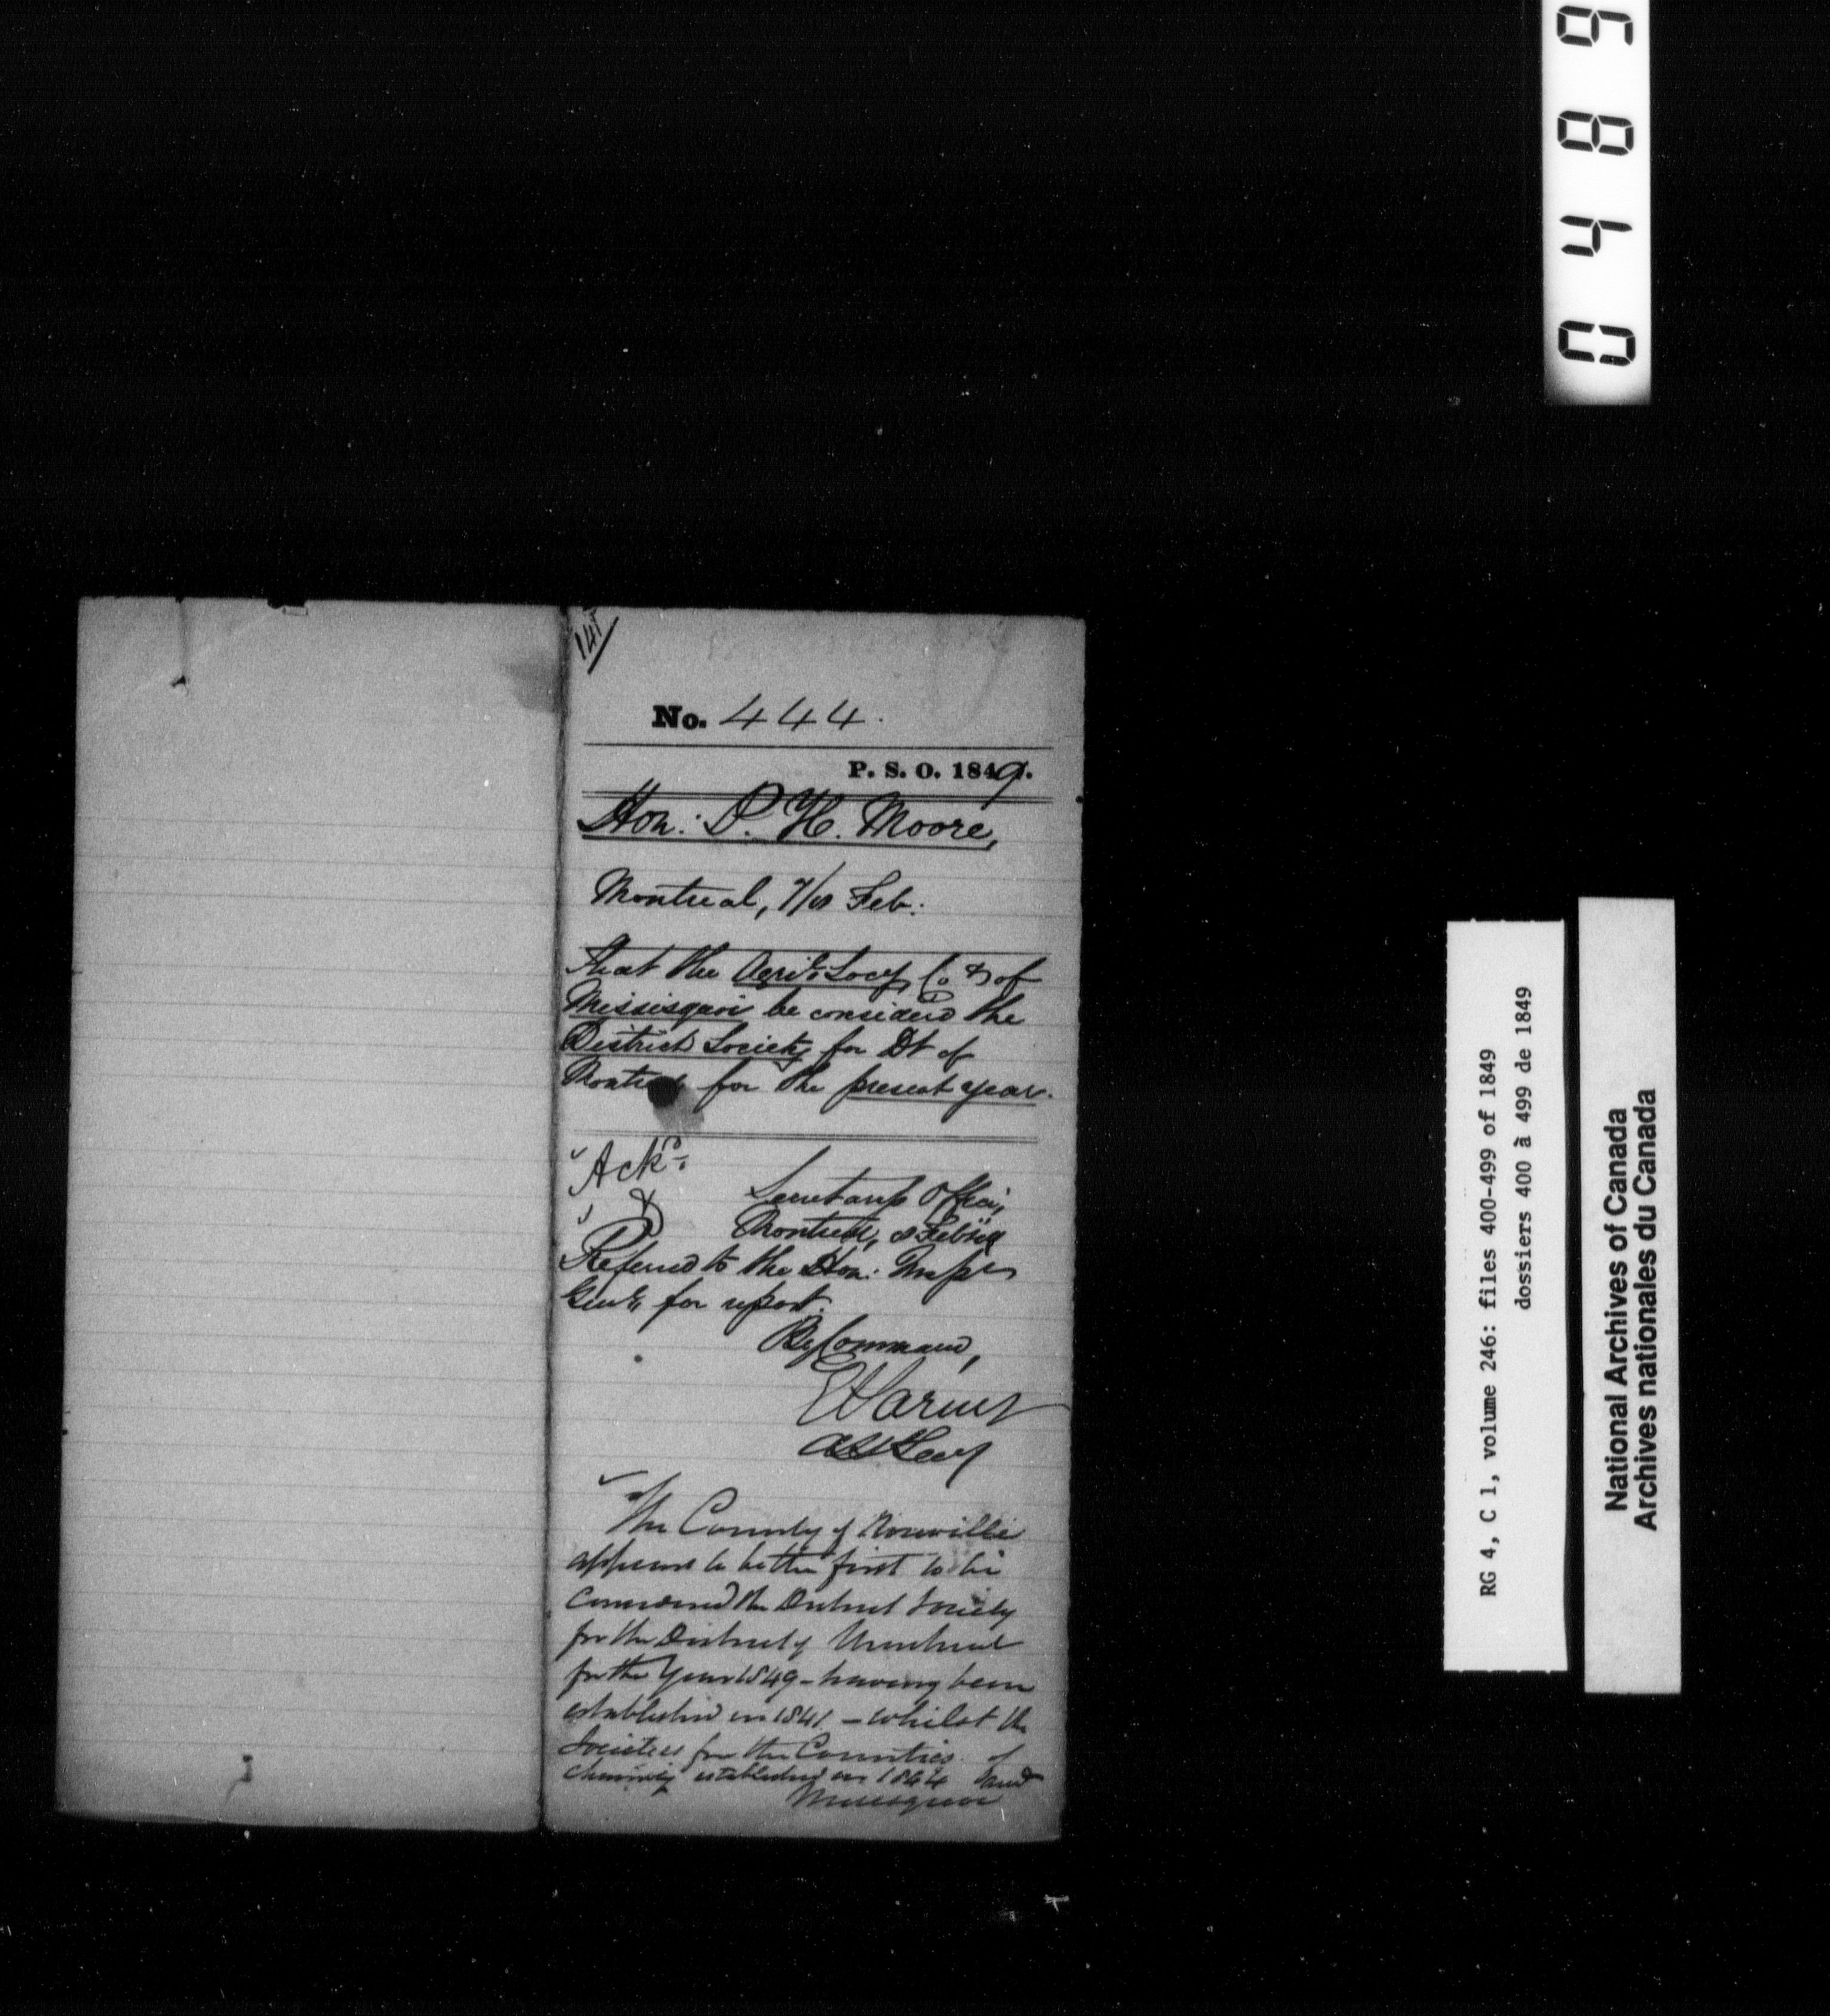 0489
14
No. 444.
P. S. O. 1849.
Hon: P. H. Moore,
Montreal, 7/8 Feb:
that the Agril. Socy Co. of
Missisquoi be considered the
District Society for Dt of
Montreal for the present year.
Ackd:
&
Secretary's Office,
Montreal, 8 Feb
Referred to the Hon: Inspr
Genl, for report.
By Command,
E Parent
Ast Secy
The County of Rouville
appears to be the first to be
considered the District Society
for the District of Montreal
for the Year 1849 - having been
established in 1841 - whilst the
Societies for the Counties of
established in 1844 and
Missisquoi
RG 4, C 1, volume 246: files 400-499 of 1849
dossiers 400 à 499 de 1849
National Archives of Canada
Archives nationales du Canada